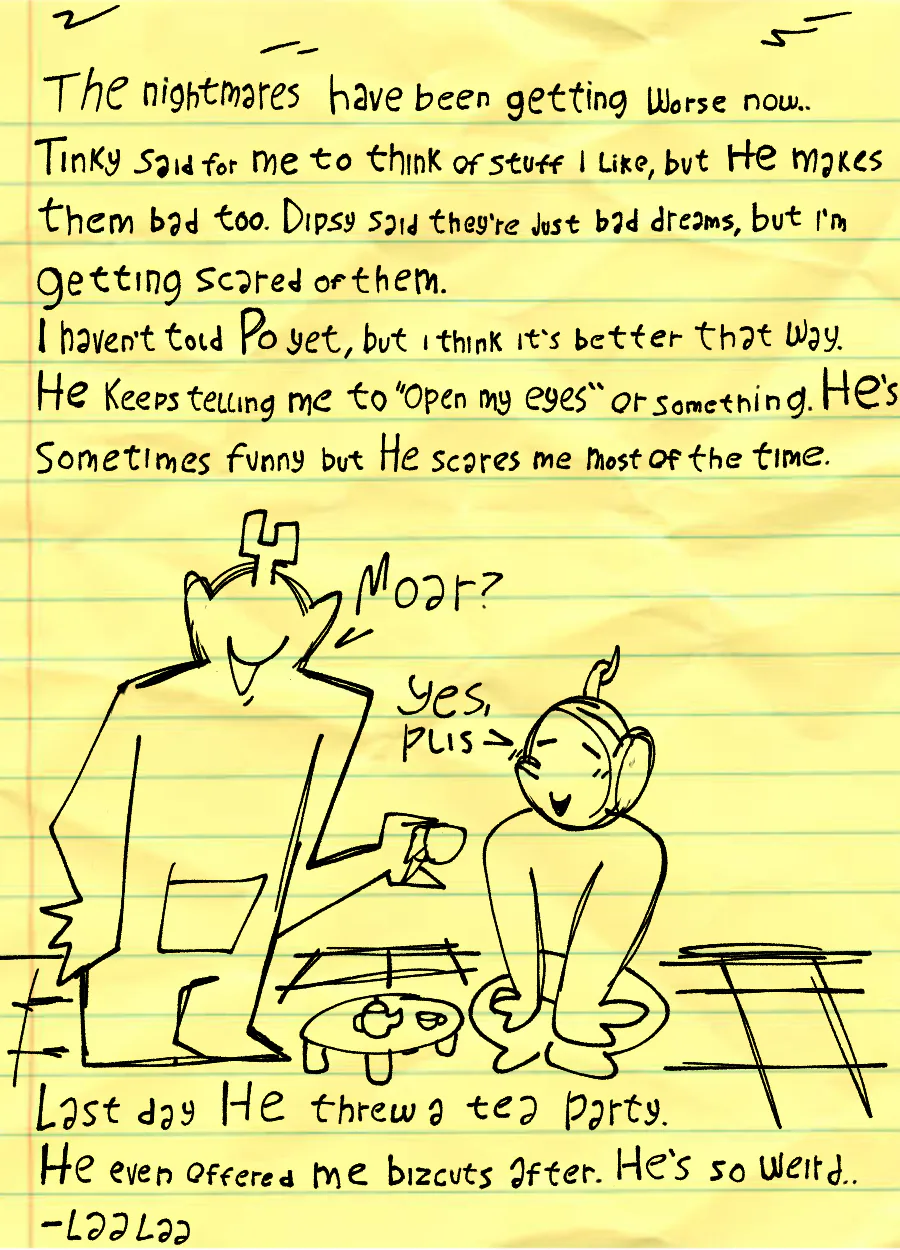 The nightmares have been getting worse now..
Tinky said for me to think of stuff I like, but He makes
them bad too. Dipsy said they're just bad dreams, but I'm
getting scared of them.
I haven't told Po yet, but i think it's better that way.
He keeps telling me to "open my eyes" or something. He's
sometimes funny but He scares me most of the time.
Moar?
Yes,
plis
Last day He threw a tea party.
He even offered me bizcuts after. He's so weird..
-Laa Laa